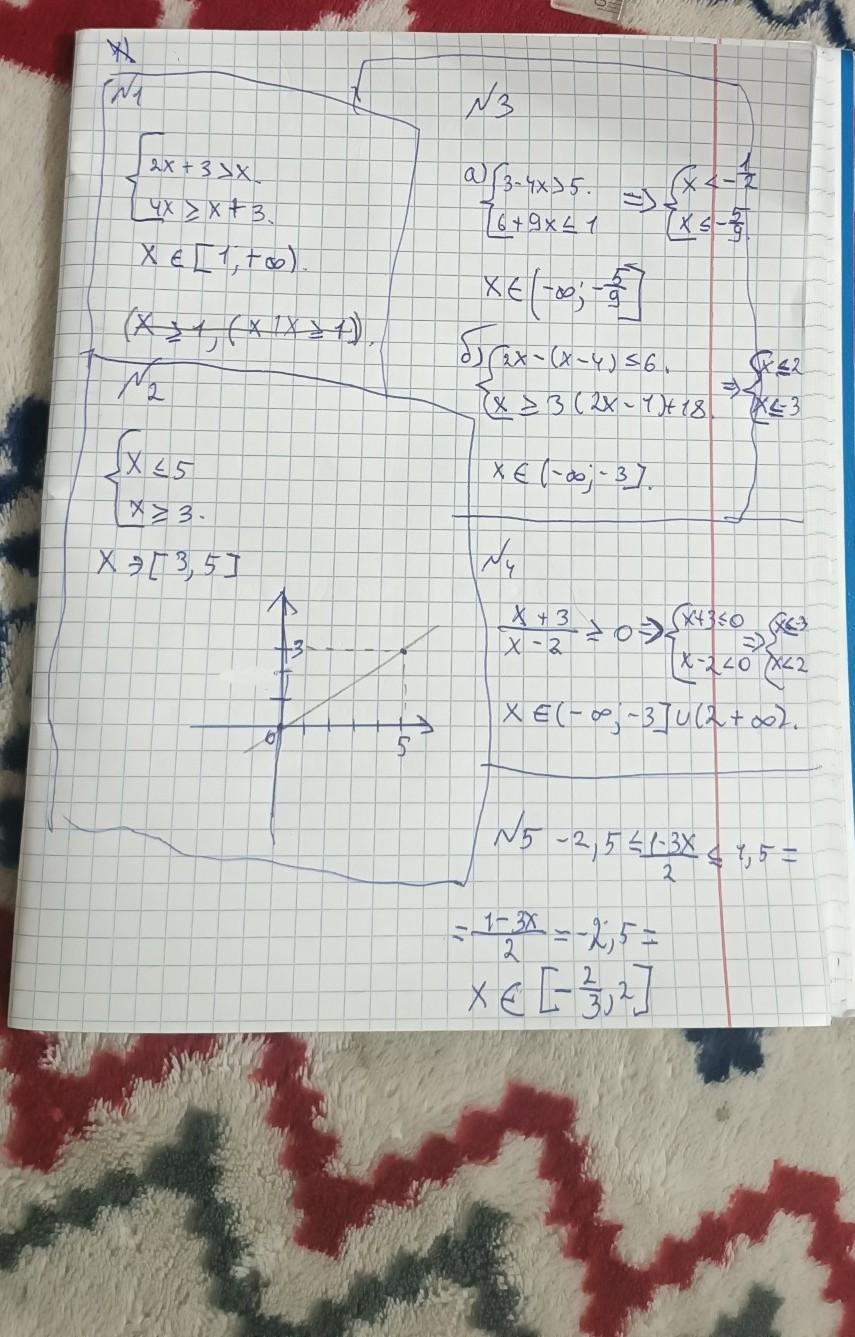 №1
{2x + 3 > x.
{4x ≥ x + 3.
x ∈ [1; +∞).
(x ≥ 1, (x 1 x ≥ 1)).
№2
{x ≤ 5
{x ≥ 3.
x ∋ [3, 5]
3
0
5
№3
а) {3-4x > 5. => {x < -1/2
{6+9x ≤ 1 {x ≤ -5/9
x ∈ (-∞; -5/9]
б) {2x-(x-4) ≤ 6. => {x ≤ 2
{x ≥ 3(2x-1)+18. {x ≤ -3
x ∈ (-∞; -3].
№4
(x+3)/(x-2) ≥ 0 => {x+3 ≤ 0 => {x ≤ -3
{x-2 < 0 {x < 2
x ∈ (-∞; -3] ∪ (2 + ∞).
№5 -2,5 ≤ (1-3x)/2 ≤ 1,5 =
= (1-3x)/2 = -2,5 =
x ∈ [-2/3, 2]